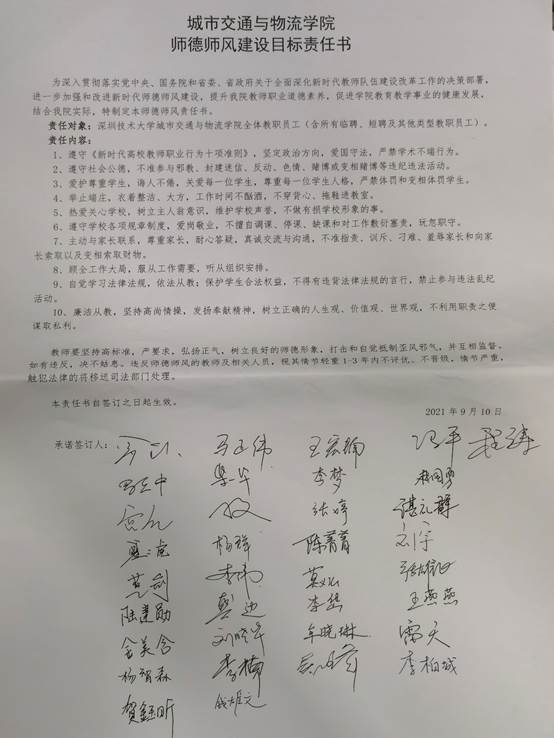 城市交通与物流学院
师德师风建设目标责任书
为深入贯彻落实党中央、国务院和省委、省政府关于全面深化新时代教师队伍建设改革工作的决策部署，
进一步加强和改进新时代师德师风建设，提升我院教师职业道德素养，促进学院教育教学事业的健康发展，
结合我院实际，特制定本师德师风责任书。
责任对象：深圳技术大学城市交通与物流学院全体教职员工（含所有临聘、短聘及其他类型教职员工）。
责任内容：
1、遵守《新时代高校教师职业行为十项准则》，坚定政治方向，爱国守法，严禁学术不端行为。
2、遵守社会公德，不准参与邪教、封建迷信、反动、色情、赌博或变相赌博等违纪违法活动。
3、爱护尊重学生，诲人不倦，关爱每一位学生，尊重每一位学生人格，严禁体罚和变相体罚学生。
4、举止端庄，衣着整洁、大方，工作时间不酗酒，不穿背心、拖鞋进教室。
5、热爱关心学校，树立主人翁意识，维护学校声誉，不做有损学校形象的事。
6、遵守学校各项规章制度，爱岗敬业，不擅自调课、停课、缺课和对工作敷衍塞责，玩忽职守。
7、主动与家长联系，尊重家长，耐心答疑，真诚交流与沟通，不准指责、训斥、刁难、羞辱家长和向家
长索取以及变相索取财物。
8、顾全工作大局，服从工作需要，听从组织安排。
9、自觉学习法律法规，依法从教；保护学生合法权益，不得有违背法律法规的言行，禁止参与违法乱纪
活动。
10、廉洁从教，坚持高尚情操，发扬奉献精神，树立正确的人生观、价值观、世界观，不利用职责之便
谋取私利。
教师要坚持高标准，严要求，弘扬正气，树立良好的师德形象，打击和自觉抵制歪风邪气，并互相监督。
如有违反，决不姑息。违反师德师风的教师及相关人员，视其情节轻重1-3年内不评优、不晋级，情节严重，
触犯法律的将移送司法部门处理。
本责任书自签订之日起生效。
2021年9月10日
承诺签订人： 马正伟 王宏楠 冯平
梁华 李梦
张婷 谌礼群
杨祥 陈菁菁 刘宇
李伟
陆建勋 李岱 王燕燕
金美含 刘晓华 车晓琳 雷天
杨智森 李楠 李柏城
贺钰昕 钱雄文